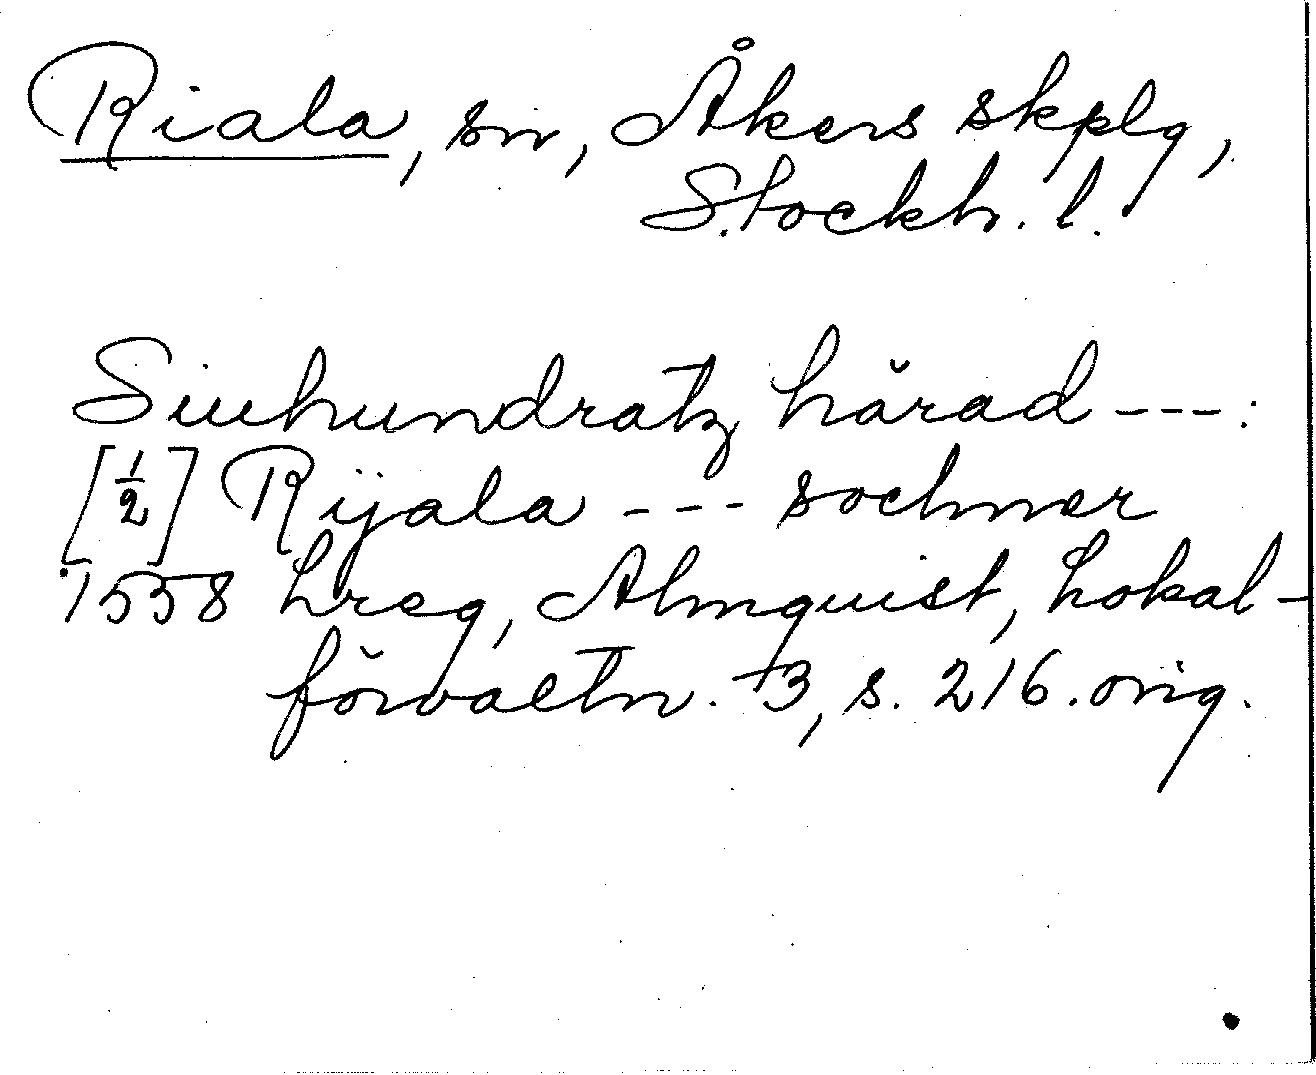 Riala, sn, Åkers skplg,
Stockh. l.
Siuhundratz härad ---:
[1/2] Rÿala --- sochner
1558 Lreg, Almquist, Lokal-
förvaltn. 3, s. 216. orig.